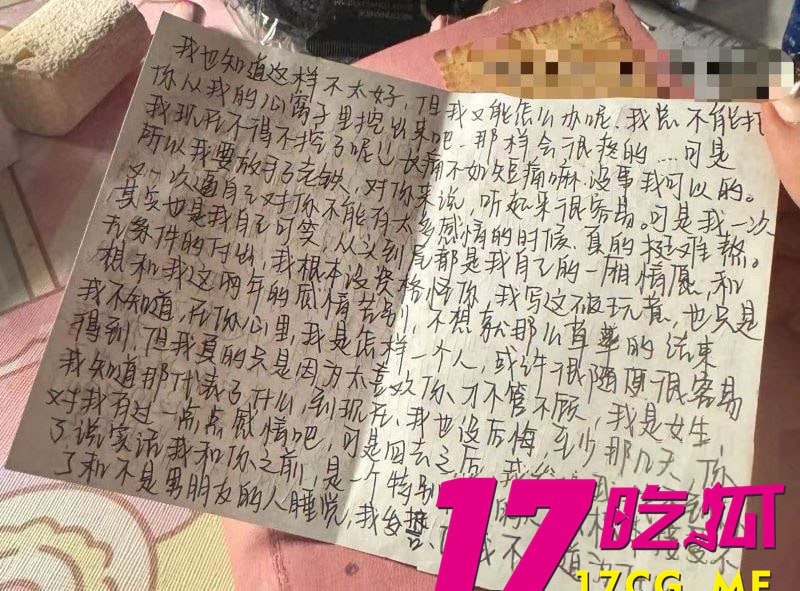 我也知道这样不太好,但我又能怎么办呢,我总不能把
你从我的心窝子里挖出来吧,那样会很疼的....可是
我现在不得不挖了呢,长痛不如短痛嘛,没事我可以的。
所以我要放手了,对你来说,听起来很容易。可是我一次
又一次逼自己对你不能有太多感情的时候,真的挺难熬。
其实也是我自己可笑,从头到尾都是我自己的一厢情愿,和
无条件的付出,我根本没资格怪你,我写这破玩意,也只是
想和我这两年的感情告别,不想就那么草草的结束
我不知道,在你心里,我是怎样一个人,或许很随便很容易
得到,但我真的只是因为太喜欢你,才不管不顾,我是女生,
我知道那代表了什么,到现在,我也没后悔,至少那几天,你
对我有过一点点感情吧,可是回去之后,我
了说实话我和你之前,是一个特别
了和不是男朋友的人睡觉,我
17吃瓜
17CG.ME